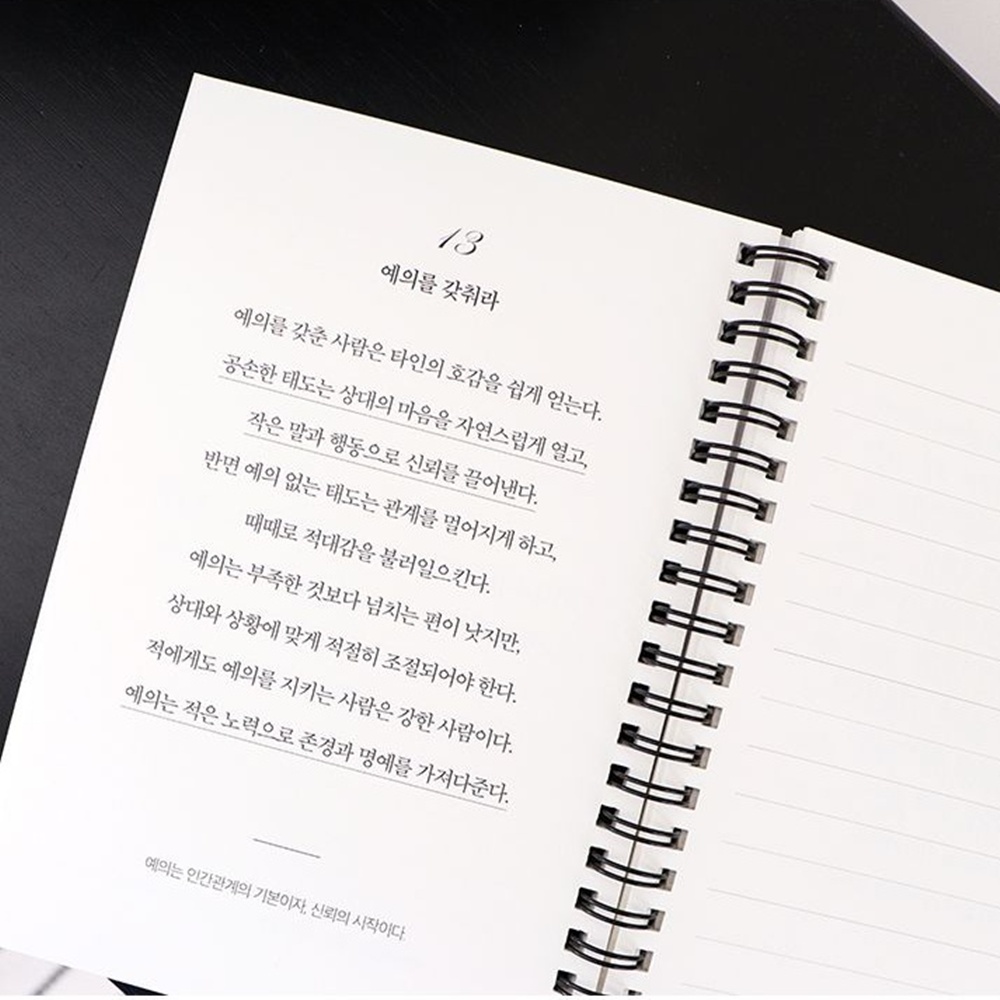 13
예의를 갖춰라
예의를 갖춘 사람은 타인의 호감을 쉽게 얻는다.
공손한 태도는 상대의 마음을 자연스럽게 열고,
작은 말과 행동으로 신뢰를 끌어낸다.
반면 예의 없는 태도는 관계를 멀어지게 하고,
때때로 적대감을 불러일으킨다.
예의는 부족한 것보다 넘치는 편이 낫지만,
상대와 상황에 맞게 적절히 조절되어야 한다.
적에게도 예의를 지키는 사람은 강한 사람이다.
예의는 적은 노력으로 존경과 명예를 가져다준다.
예의는 인간관계의 기본이자, 신뢰의 시작이다.